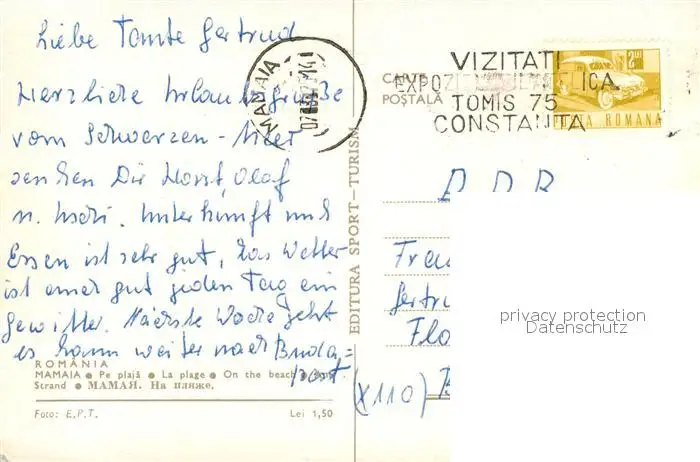 Liebe Tante Gertrud
Herzliche Urlaubsgrüße
vom Schwarzen-Meer
senden Dir Horst, Olaf
u. Uschi. Unterkunft und
Essen ist sehr gut, das Wetter
ist gut jeden Tag ein
Gewitter. Nächste Woche geht
es dann weiter nach Buda=
pest.
ROMÂNIA
MAMAIA ● Pe plajă ● La plage ● On the beach ● Am
Strand ● МАМАЯ. На пляже.
Foto: E.P.T. Lei 1,50
EDITURA SPORT-TURISM
MAMAIA
CARTE
POŞTALĂ
VIZITATI
EXPOZITIA FILATELICA
TOMIS 75
CONSTANTA
POSTA ROMANA
DDR
Frau
Gertru
Flo
(X110)
privacy protection
Datenschutz